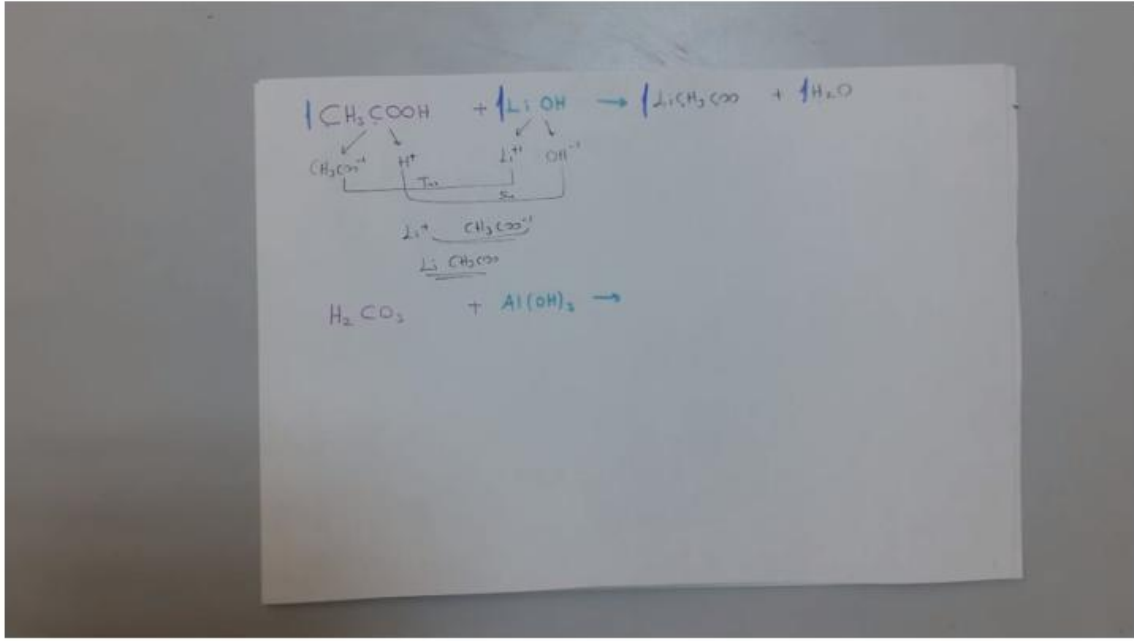 1CH₃COOH + 1LiOH → 1LiCH₃COO + 1H₂O
CH₃COO⁻¹ H⁺ Li⁺¹ OH⁻¹
Tuz
Su
Li⁺ CH₃COO⁻¹
Li CH₃COO
H₂CO₃ + Al(OH)₃ →